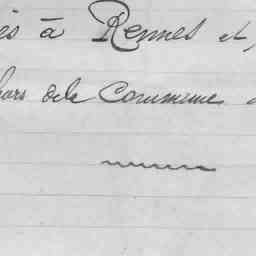 és à Rennes et,
hors de la Commune